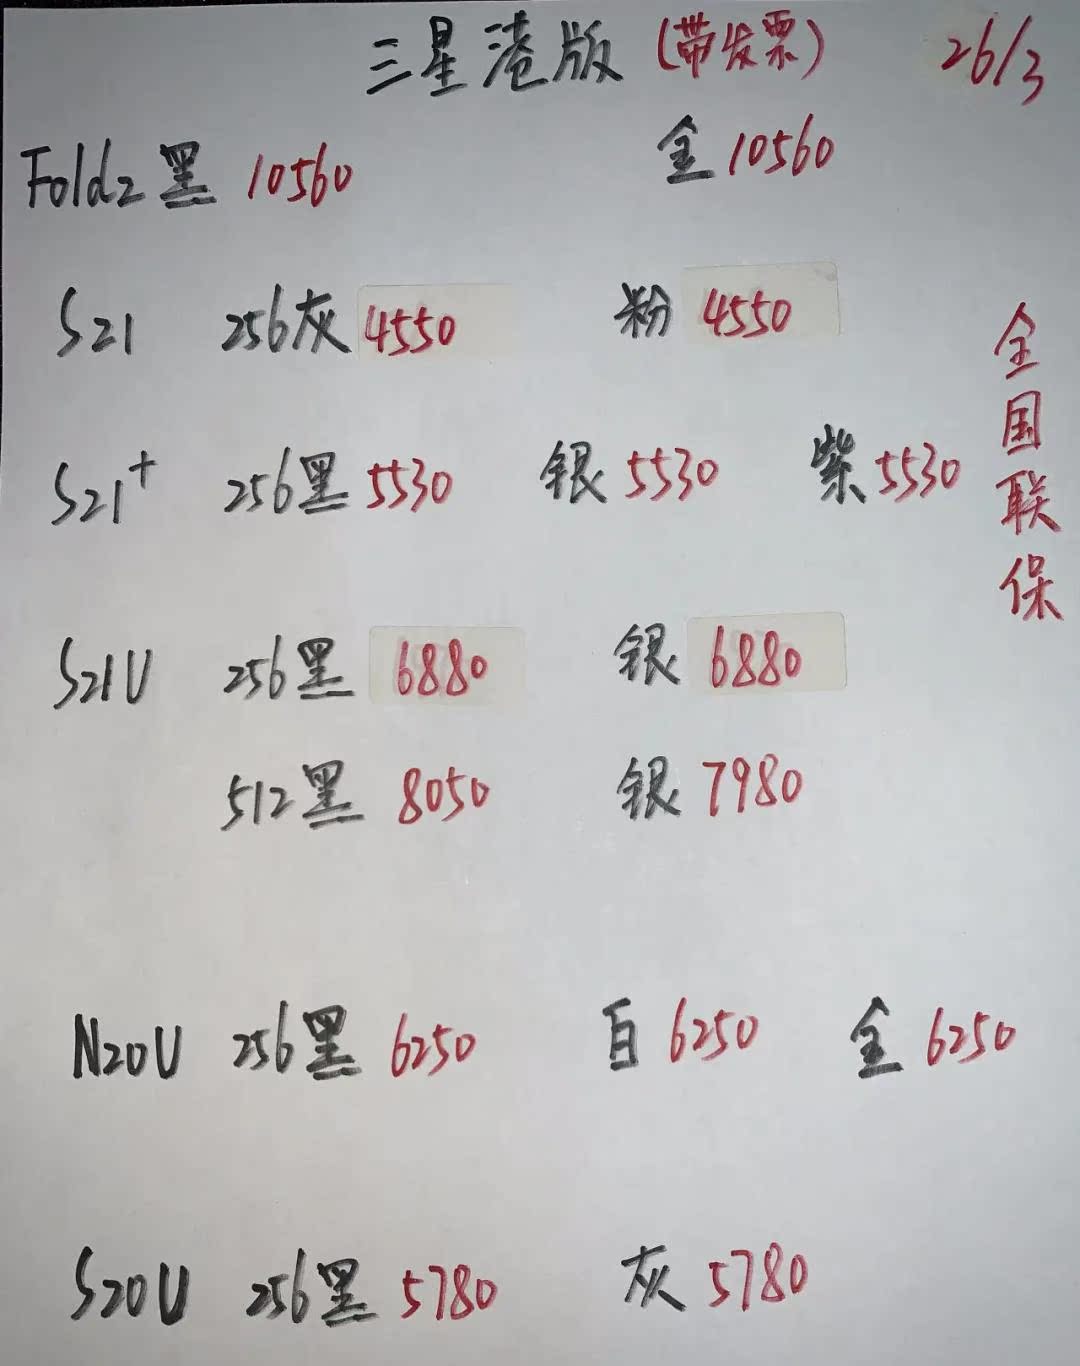 三星港版(带发票) 26/3
Fold2黑 10560 金10560
S21 256灰 4550 粉 4550
S21+ 256黑 5530 银 5530 紫 5530
S21U 256黑 6880 银 6880
512黑 8050 银 7980
N20U 256黑 6250 白 6250 金 6250
S20U 256黑 5780 灰 5780
全国联保